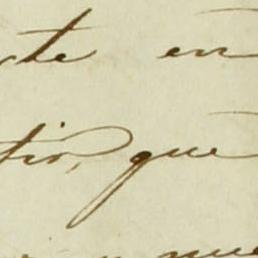 cte en
tio, que